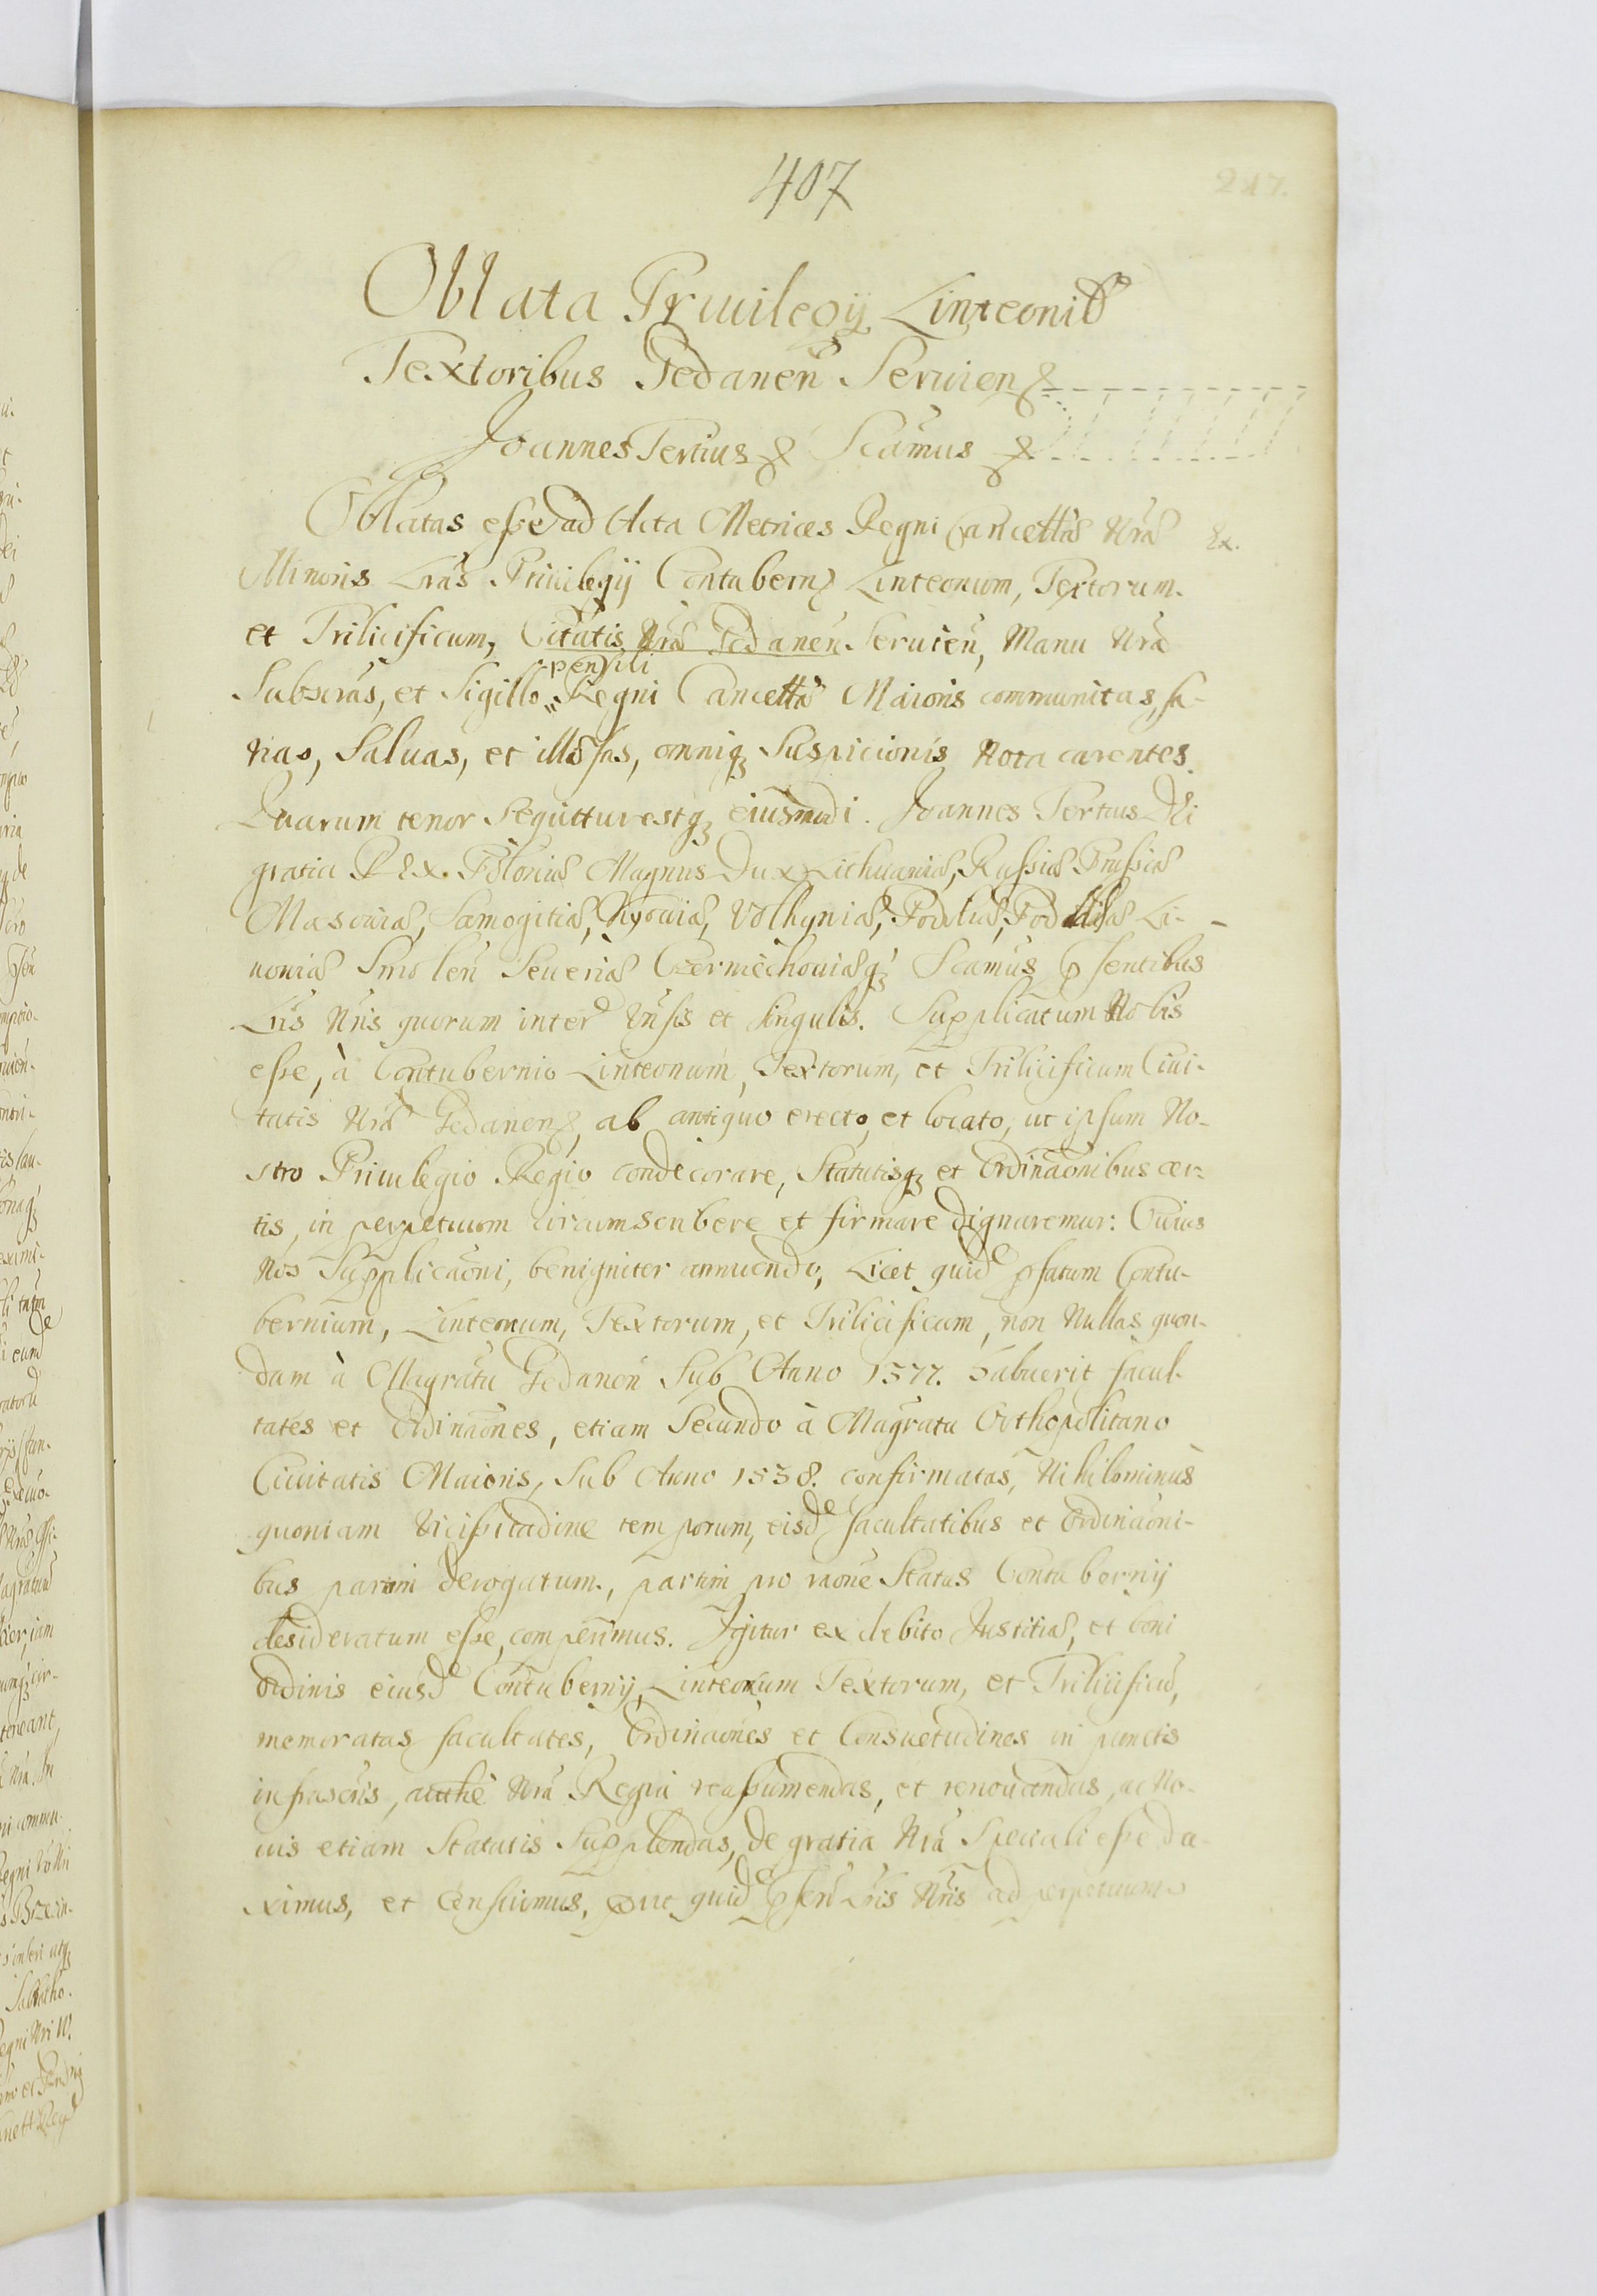 407
217.
Oblata Priuilegij Linteonib
Textoribus Gedanen̄ Seruien
Joannes Tertius Scamus
Oblatas esse ad Acta Metrices Regni Cancellæ Nræ Ex.
Minoris Lrãs Priuilegij Contubern Linteonum, Textorum
et Trilicificum, Ciuitatis Nræ Gedanen̄ Seruien̄, Manu Nrã
pensili
Subscrãs, et Sigillo Regni Cancellæ Maioris communitas, sa-
nas, Saluas, et illæsas, omniq Suspicionis Nota carentes.
Quarum tenor Sequittur estq eiusmodi. Joannes Tertius Dei
gratia Rex Poloniæ Magnus Dux Lithuaniæ, Russiæ Prussiæ
Masouiæ, Samogitiæ, Kyouiæ, Volhyniæ, Podoliæ, Podlachiæ Li-
uoniæ Smolen̄ Seueriæ Czerniechouiæq Scamus psentibus
Lris Nris quorum interē Vnisis et singulis. Supplicatum Nobis
esse, à Contubernio Linteonum, Textorum, et Trilicificum Ciui-
tatis Nræ Gedanen, ab antiquo erecto, et locato, ut ipsum No-
stro Priuilegio Regio condecorare, Statutisq et Ordinãonibus cer-
tis, in perpetuum circumscribere et firmare dignaremur: Cuius
Nos Supplicãoni, benigniter annuendo, Licet quidē pfatum Contu-
bernium, Linteonum, Textorum, et Trilicificum, non Nullas quon-
dam à Magrãtu Gedanen̄ Sub Anno 1577. habuerit facul-
tates et Ordinãones, etiam Secundo à Magrãtu Orthopolitano
Ciuitatis Maioris, Sub Anno 1538. confirmatas, Nihilominus
quoniam Vicissitudine temporum, eisdē facultatibus et Ordinãoni-
bus partim derogatum, partim pro rãone Status Contubernij
desideratum esse, comperimus. Igitur ex debito Justitiæ, et boni
ordinis eiusdē Contubernij, Linteonum Textorum, et Trilicificū,
memoratas facultates, Ordinãones et Consuetudines in punctis
infrascris, autthē Nrã Regia reassumendas, et renouandas, ac No-
uis etiam Statutis Supplendas, de gratia Nrã Speciali esse du-
ximus, et Censuimus, prout quidē psen̄ Lris Nris ad perpetuum